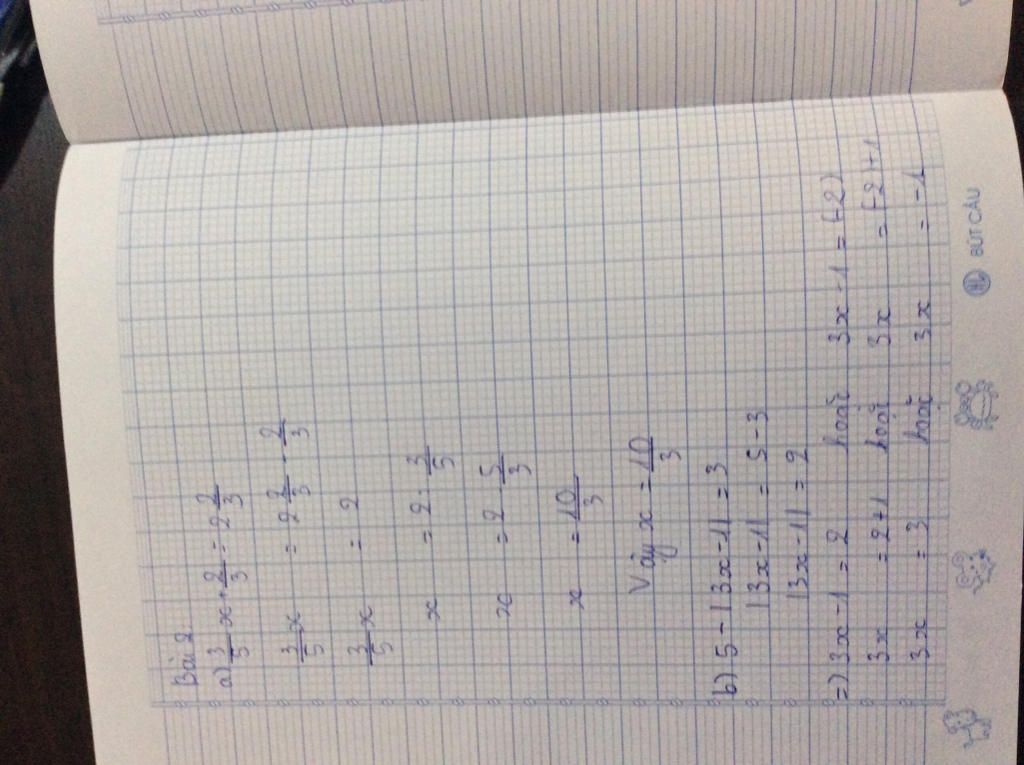 Bài 2.
a) 3/5 x + 2/3 = 2 2/3
3/5 x = 2 2/3 - 2/3
3/5 x = 2
x = 2 : 3/5
x = 2 . 5/3
x = 10/3
Vậy x = 10/3
b) 5 - |3x - 1| = 3
|3x - 1| = 5 - 3
|3x - 1| = 2
=) 3x - 1 = 2 hoặc 3x - 1 = (-2)
3x = 2 + 1 hoặc 3x = (-2) + 1
3x = 3 hoặc 3x = -1
BÚT CÂU